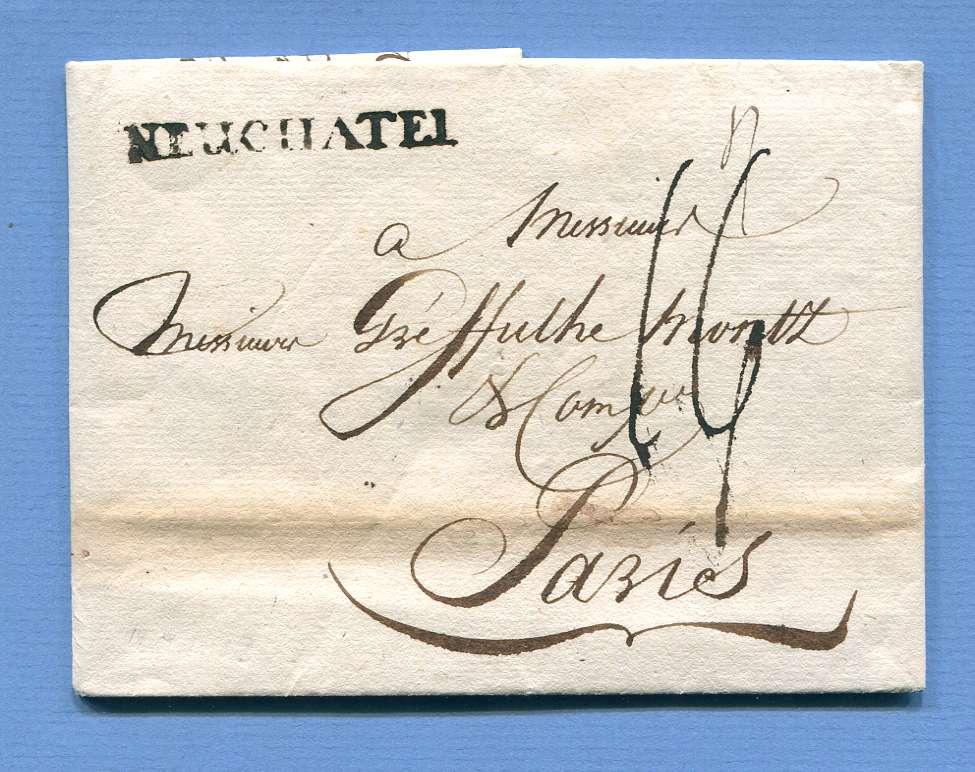 NEUCHATEL
a Messieurs
Messieurs Greffulhe Montz
& Comp
Paris